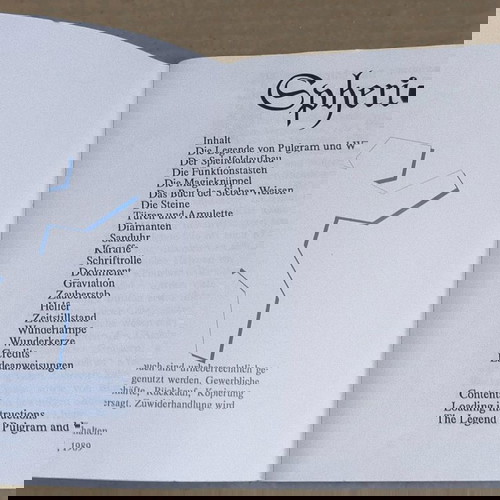 Spheri
Inhalt
Die Legende von Pulgram und
Der Spielfeldaufbau
Die Funktionstasten
Die Magieknüppel
Das Buch der Sieben Weisen
Die Steine
Türen und Amulette
Diamanten
Sanduhr
Karaffe
Schriftrolle
Dokument
Graviation
Zauberstab
Helfer
Zeitstillstand
Wunderlampe
Wunderkerze
Credits
Ladeanweisungen
genutzt werden. Gewerbliche
Rückkauf, Kopierung
ersagt. Zuwiderhandlung wird
Content
Loading in
structions
The Legend Pulgram and
halten.
1989